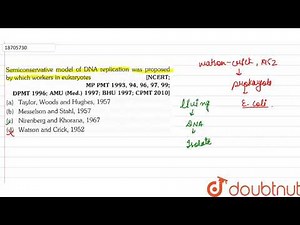 18705730
Semiconservative model of DNA replication was proposed
by which workers in eukaryotes [NCERT;
MP PMT 1993, 94, 96, 97, 99;
DPMT 1996; AMU (Med.) 1997; BHU 1997; CPMT 2010]
(a) Taylor, Woods and Hughes, 1957
(b) Messelson and Stahl, 1957
(c) Nirenberg and Khorana, 1967
(d) Watson and Crick, 1952
prokaryote
E-coli
living
DNA
Isolate
doubtnut